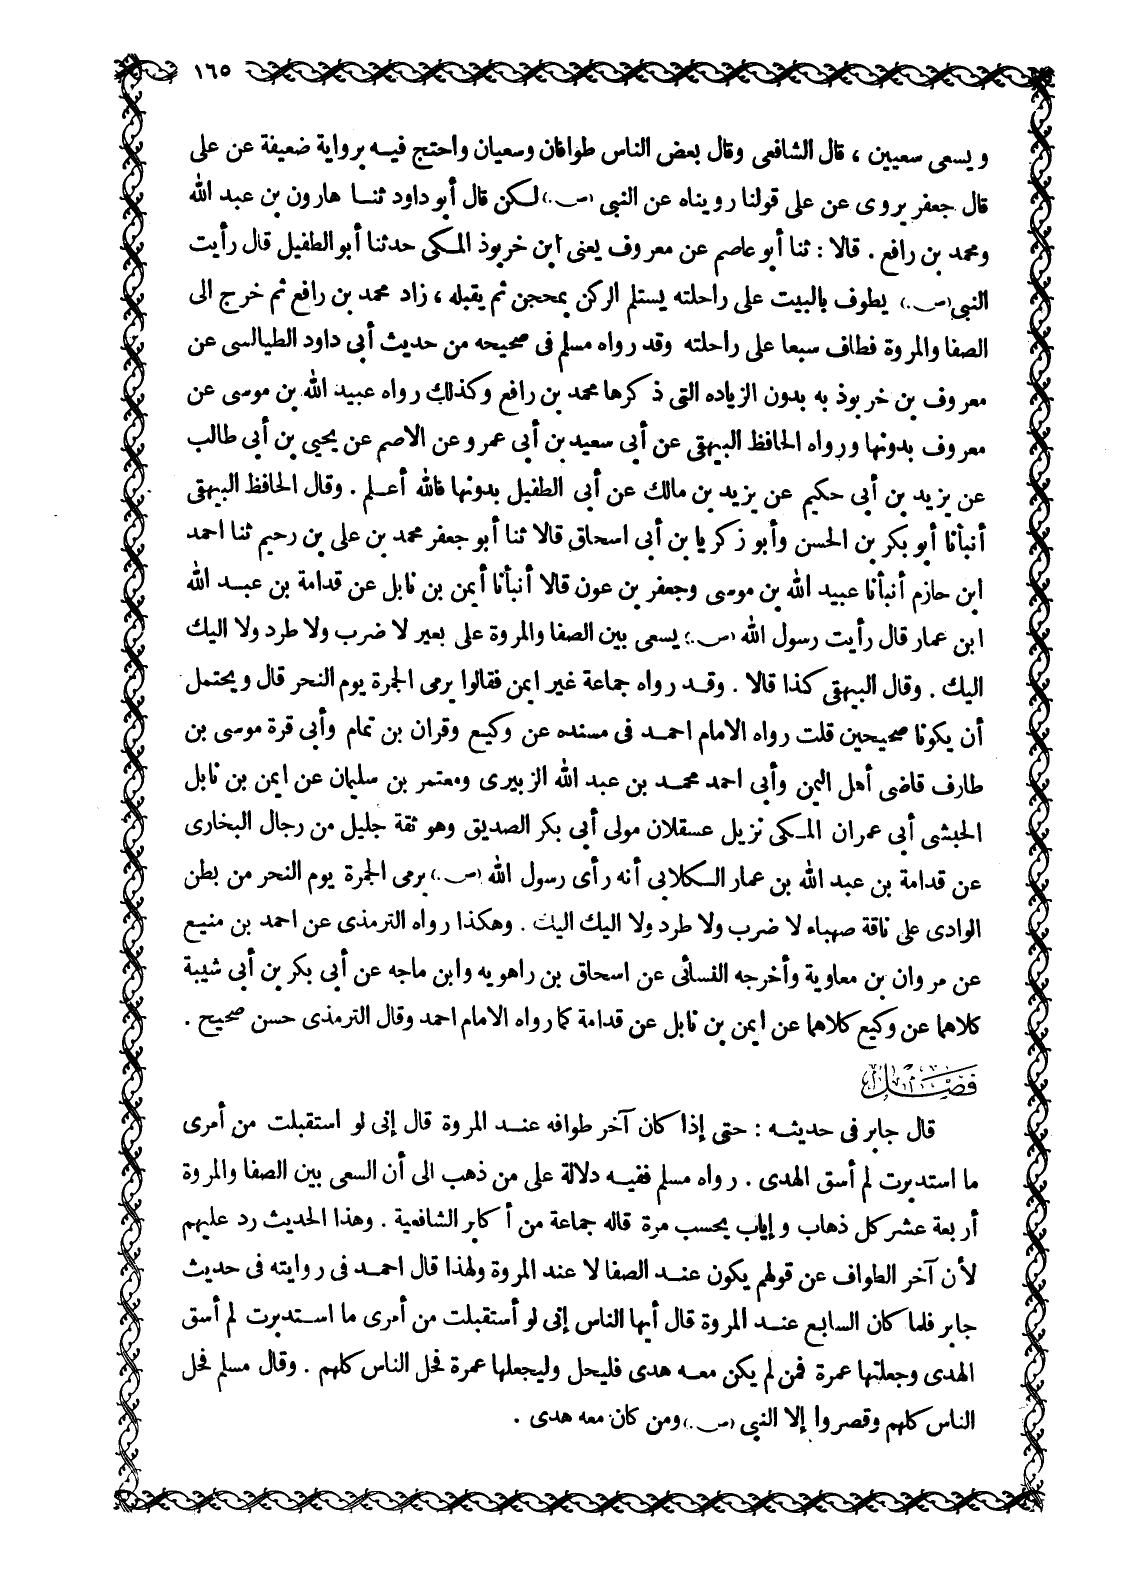 ١٦٥
ويسعى سعيين ، قال الشافعى وقال بعض الناس طوافان وسعيان واحتج فيه برواية ضعيفة عن على
قال جعفر يروى عن على قولنا رويناه عن النبى (ص.) لكن قال أبو داود ثنا هارون بن عبد الله
ومحمد بن رافع . قالا : ثنا أبو عاصم عن معروف يعنى ابن خربوذ المكى حدثنا أبو الطفيل قال رأيت
النبى (ص.) يطوف بالبيت على راحلته يستلم الركن بمحجن ثم يقبله ، زاد محمد بن رافع ثم خرج الى
الصفا والمروة فطاف سبعا على راحلته وقد رواه مسلم فى صحيحه من حديث أبى داود الطيالسى عن
معروف بن خربوذ به بدون الزياده التى ذكرها محمد بن رافع وكذلك رواه عبيد الله بن موسى عن
معروف بدونها ورواه الحافظ البيهقى عن أبى سعيد بن أبى عمرو عن الاصم عن يحيى بن أبى طالب
عن يزيد بن أبى حكيم عن يزيد بن مالك عن أبى الطفيل بدونها فالله أعلم . وقال الحافظ البيهقى
أنبأنا أبو بكر بن الحسن وأبو زكريا بن أبى اسحاق قالا ثنا أبو جعفر محمد بن على بن رحيم ثنا احمد
ابن حازم أنبأنا عبيد الله بن موسى وجعفر بن عون قالا أنبأنا أيمن بن نابل عن قدامة بن عبد الله
ابن عمار قال رأيت رسول الله (ص.) يسعى بين الصفا والمروة على بعير لا ضرب ولا طرد ولا اليك
اليك . وقال البيهقى كذا قالا . وقد رواه جماعة غير ايمن فقالوا يرمى الجمرة يوم النحر قال ويحتمل
أن يكونا صحيحين قلت رواه الامام احمد فى مسنده عن وكيع وقران بن تمام وأبى قرة موسى بن
طارف قاضى أهل اليمن وأبى احمد محمد بن عبد الله الزبيرى ومعتمر بن سليمان عن ايمن بن نابل
الحبشى أبى عمران المكى نزيل عسقلان مولى أبى بكر الصديق وهو ثقة جليل من رجال البخارى
عن قدامة بن عبد الله بن عمار الكلابى أنه رأى رسول الله (ص.) يرمى الجمرة يوم النحر من بطن
الوادى على ناقة صهباء لا ضرب ولا طرد ولا اليك اليك . وهكذا رواه الترمذى عن احمد بن منيع
عن مروان بن معاوية وأخرجه النسائى عن اسحاق بن راهويه وابن ماجه عن أبى بكر بن أبى شيبة
كلاهما عن وكيع كلاهما عن ايمن بن نابل عن قدامة كما رواه الامام احمد وقال الترمذى حسن صحيح .
فصل
قال جابر فى حديثه : حتى إذا كان آخر طوافه عند المروة قال إنى لو استقبلت من أمرى
ما استدبرت لم أسق الهدى . رواه مسلم ففيه دلالة على من ذهب الى أن السعى بين الصفا والمروة
أربعة عشر كل ذهاب و إياب يحسب مرة قاله جماعة من أكابر الشافعية . وهذا الحديث رد عليهم
لأن آخر الطواف عن قولهم يكون عند الصفا لا عند المروة ولهذا قال احمد فى روايته فى حديث
جابر فلما كان السابع عند المروة قال أيها الناس إنى لو أستقبلت من أمرى ما استدبرت لم أسق
الهدى وجعلتها عمرة فمن لم يكن معه هدى فليحل وليجعلها عمرة فحل الناس كلهم . وقال مسلم فحل
الناس كلهم وقصروا إلا النبى (ص.) ومن كان معه هدى .